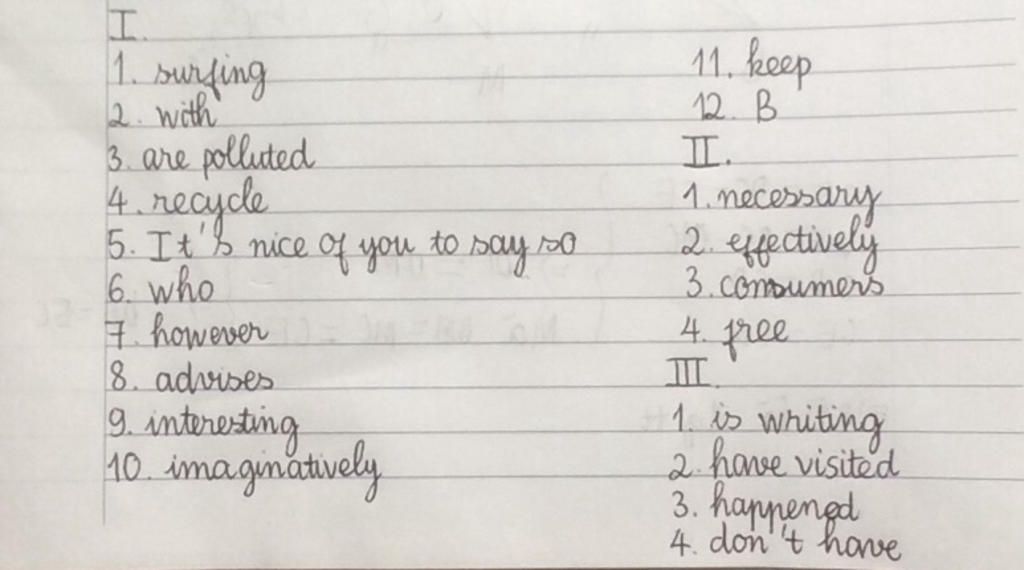 I.
1. surfing
2. with
3. are polluted
4. recycle
5. It's nice of you to say so
6. who
7. however
8. advises
9. interesting
10. imaginatively
11. keep
12. B
II.
1. necessary
2. effectively
3. consumers
4. free
III.
1. is writing
2. have visited
3. happened
4. don't have